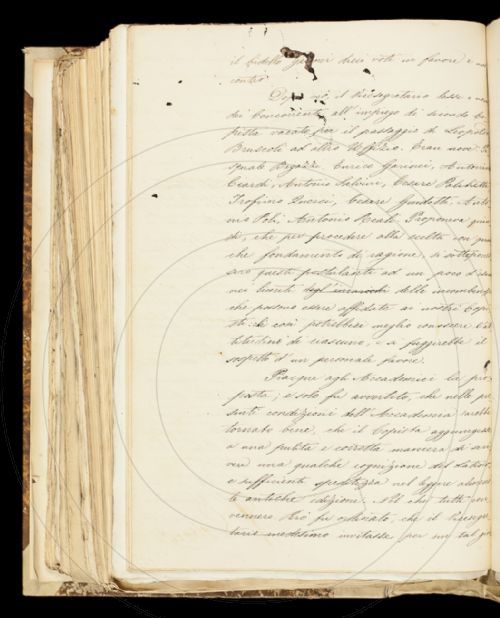 il bidello dieci voti in favore e
contro
Dopo ciò il Vicesegretario lesse
dei Concorrenti all'impiego di secondo Co
pista vacato per il passaggio di Leopoldo
Bruscoli ad altro Uffizio. Eran nove
Bigazzi, Enrico Antonio
Ceardi, Antonio Salvini, Cesare
Trofimo Cesare Guidotti, Anto
nio Poli, Antonio Reali. Propone
di, che per procedere alla scelta con
che fondamento di ragione, si sottopones
sero questi postulanti ad un poco
delle incombenze
che possono essere affidate ai nostri Copi
sti: che così potrebbesi meglio conoscere l'at
titudine di ciascuno, e si fuggirebbe il
sospetto d'un personale favore.
Piacque agli Accademici la pro
posta; e solo fu avvertito, che nelle pre
senti condizioni dell'Accademia sarebbe
tornato bene, che il Copista aggiungesse
a una pulita e corretta maniera di scri
vere una qualche cognizione del Latino,
e sufficiente speditezza nel leggere
antiche edizioni. Al che tutti con
vennero. E fu ordinato, che il Vicesegre
tario medesimo invitasse per un tal